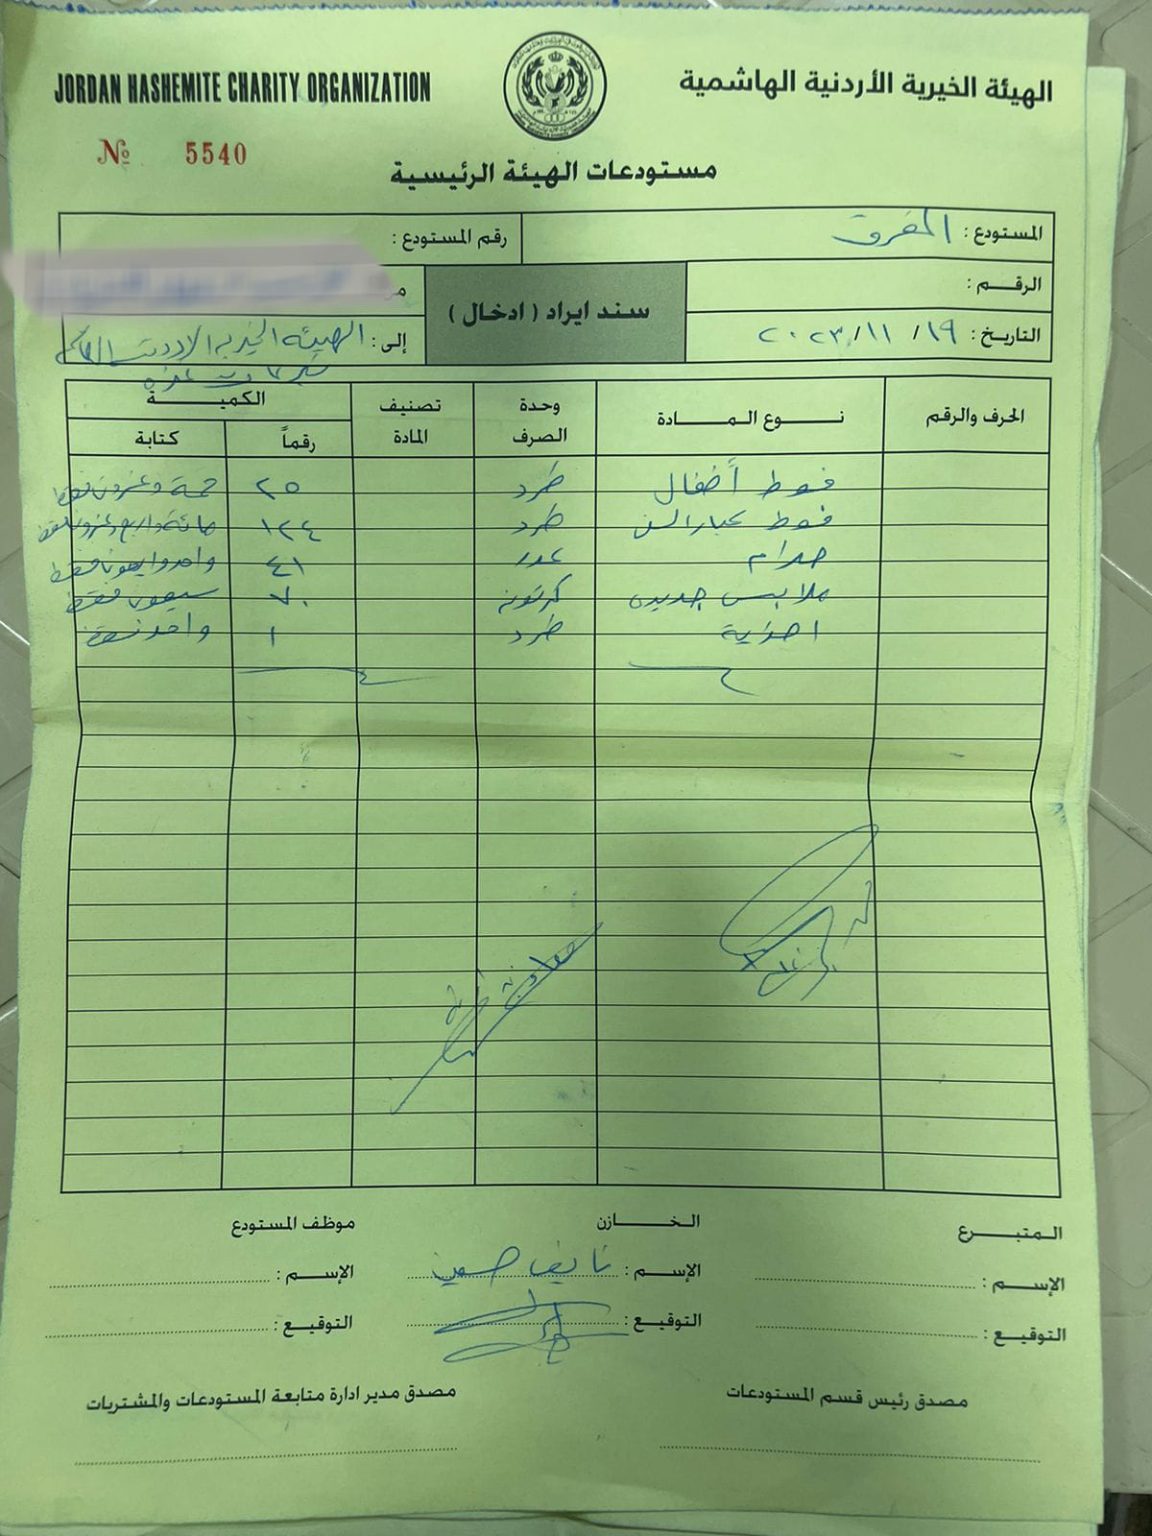 JORDAN HASHEMITE CHARITY ORGANIZATION
الهيئة الخيرية الأردنية الهاشمية
№ 5540
مستودعات الهيئة الرئيسية
المستودع : المفرق
رقم المستودع :
الرقم :
سند ايراد ( ادخال )
التاريخ : ١٩/ ١١/ ٢٠٢٣
إلى : الهيئة الخيرية الاردنية الهاشمية
غزه
الحرف والرقم
نوع المادة
وحدة الصرف
تصنيف المادة
الكمية
رقماً
كتابة
فوط أطفال طرد ٢٥ خمسة وعشرون فقط
فوط كبار السن طرد ١٢٤ مائة واربع وعشرون فقط
حرام عدد ٤١ واحد واربعون فقط
ملابس جديده كرتونه ٧٠ سبعون فقط
احذية طرد ١ واحد فقط
المتبرع
الخازن
موظف المستودع
الإسم :
الإسم : نايف حسين
الإسم :
التوقيع :
التوقيع :
التوقيع :
مصدق رئيس قسم المستودعات
مصدق مدير ادارة متابعة المستودعات والمشتريات